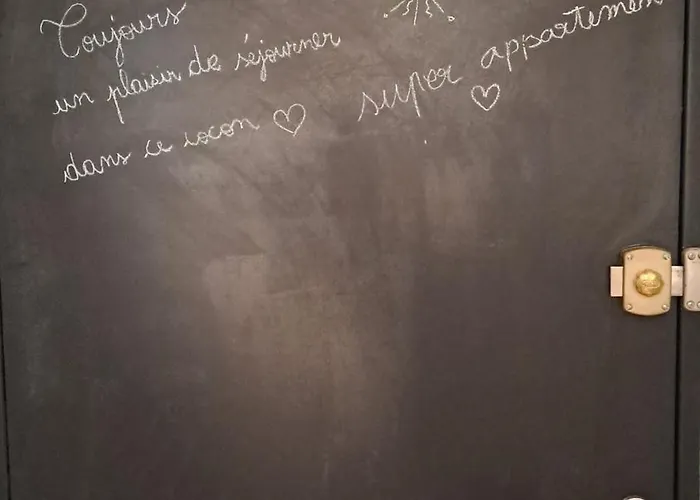 Toujours
un plaisir de séjourner
dans ce cocon ♡
super appartement ♡